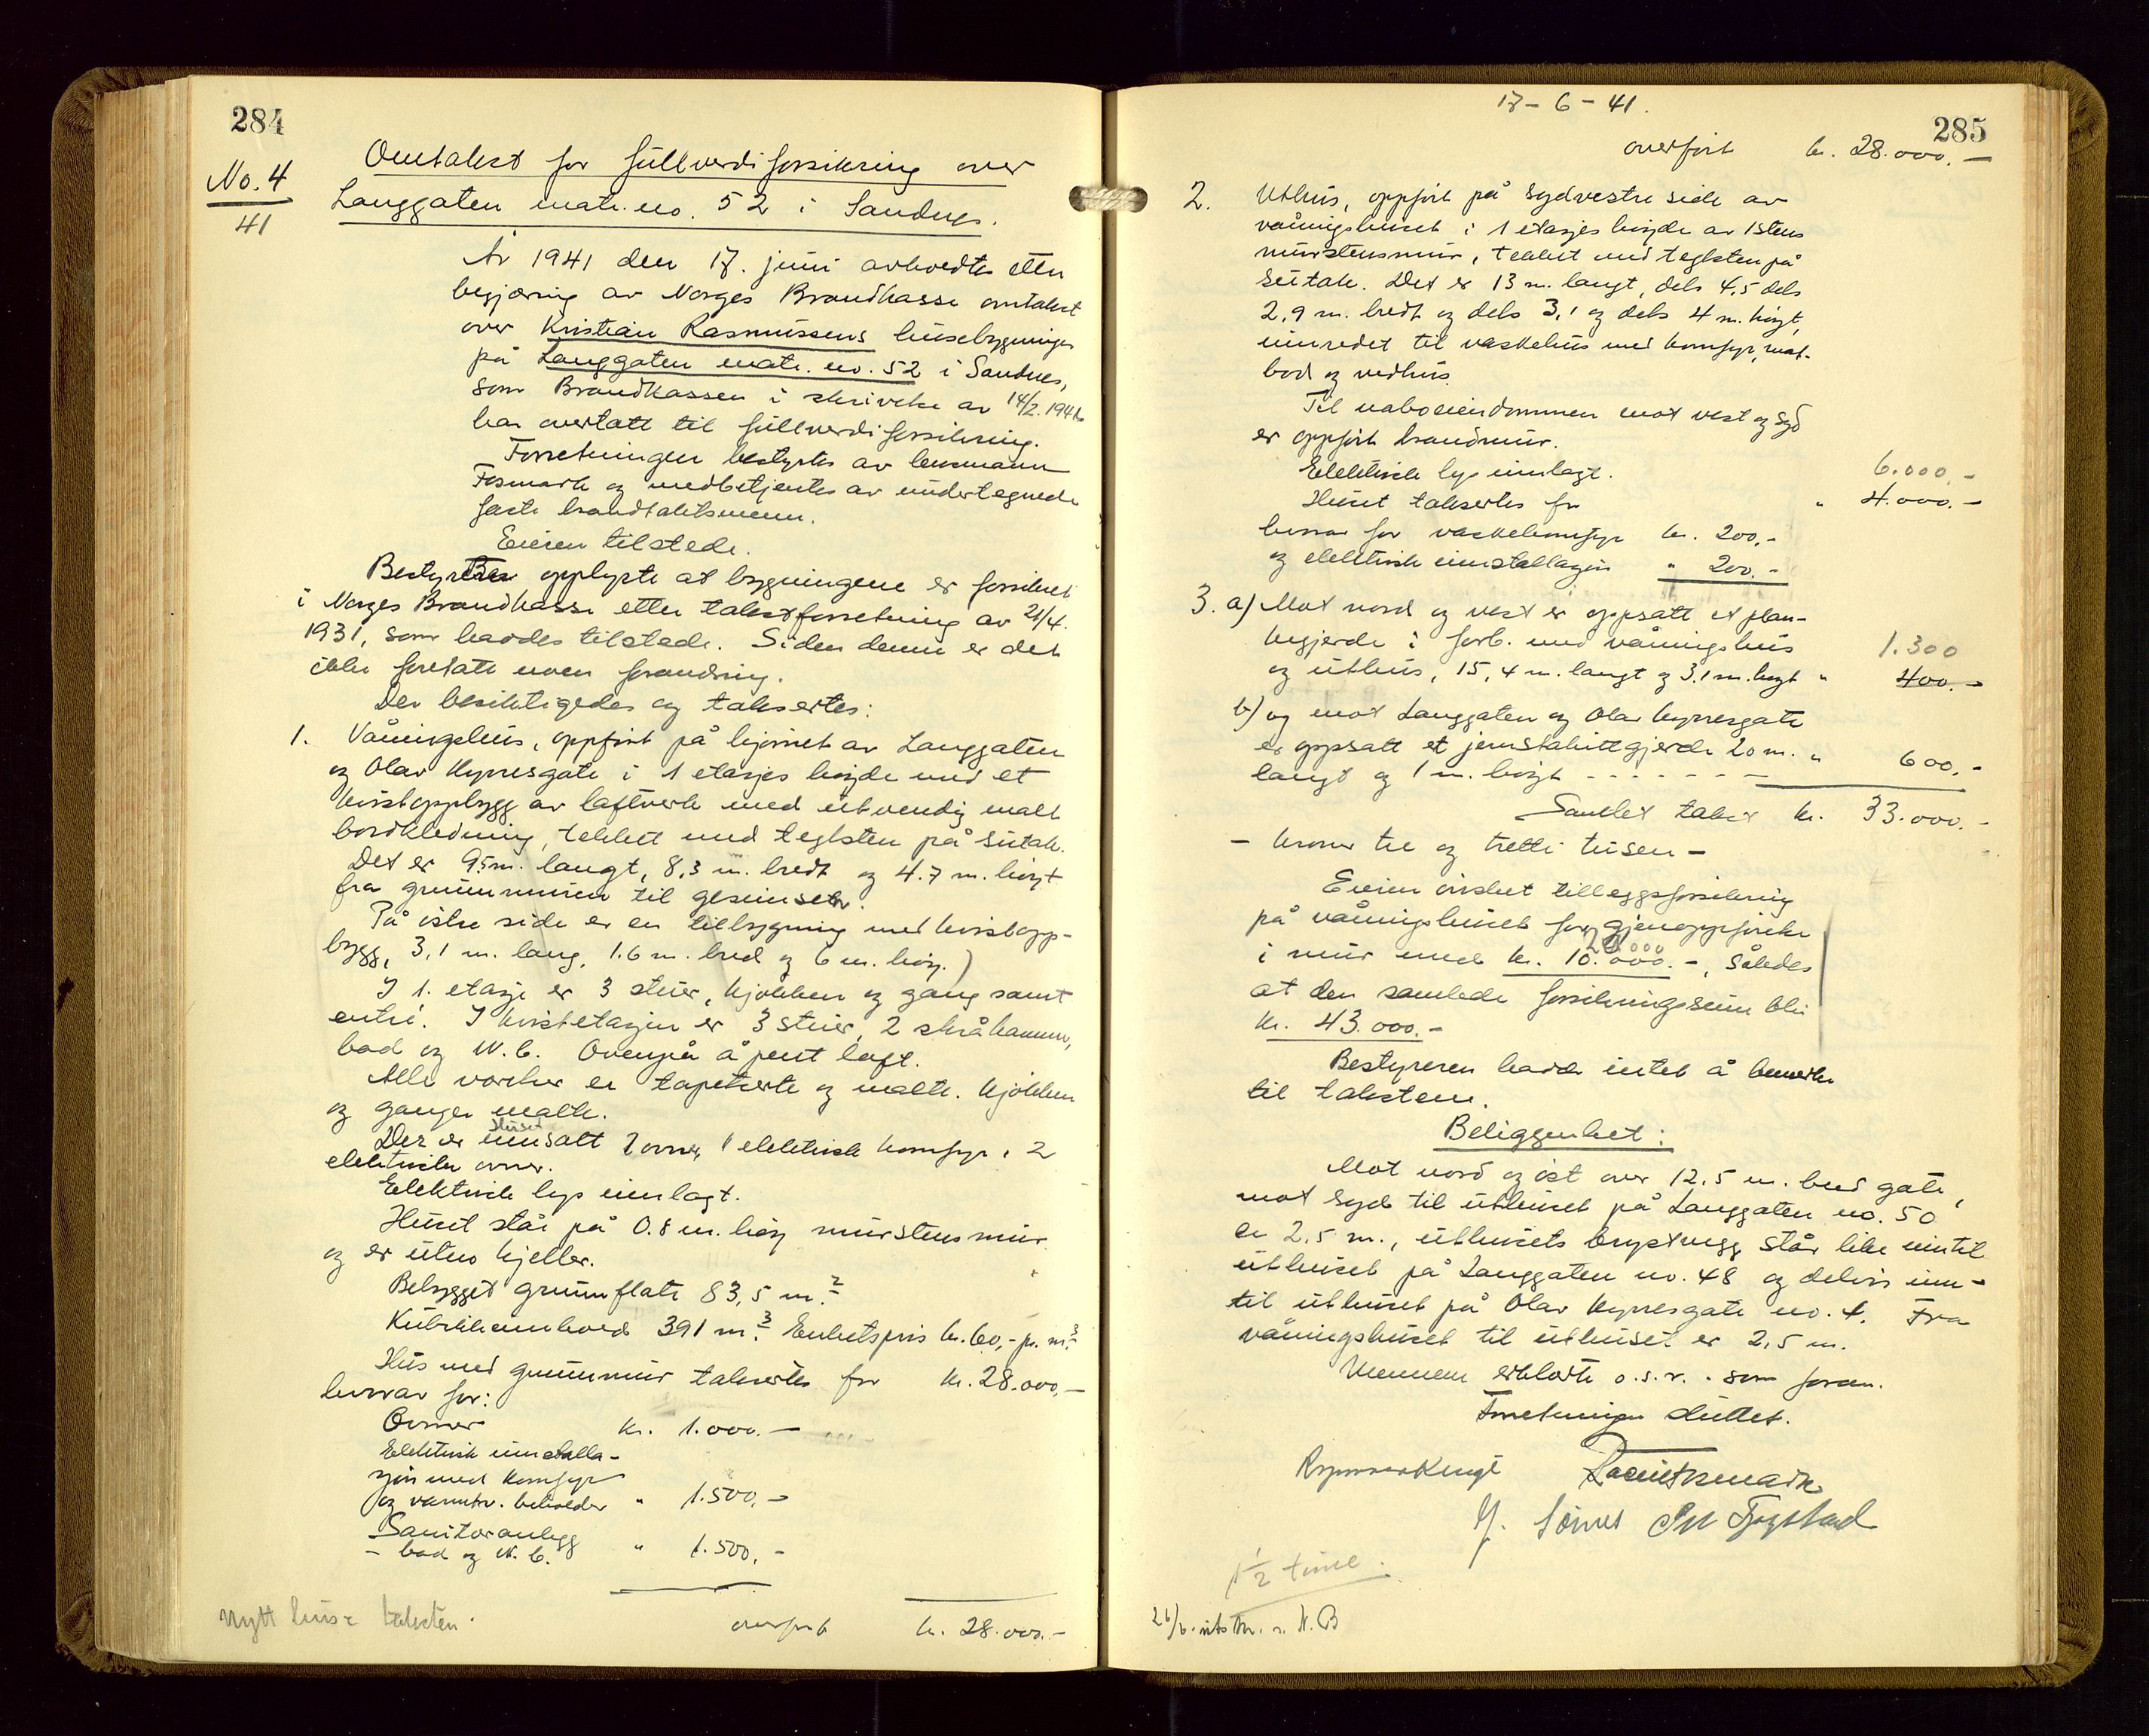 284
No. 4
41
Omtakst for fullverdiforsikring over
Langgaten matr. no. 52 i Sandnes.
År 1941 den 17. juni avholdtes etter
begjæring av Norges Brandkasse omtakst
over Kristian Rasmussens husebygninger
på Langgaten matr. no. 52 i Sandnes,
som Brandkassen i skrivelse av 14/2. 1941
har overtatt til fullverdiforsikring.
Forretningen bestyrtes av lensmann
Fosmark og medbetjentes av undertegnede
faste brandtakstmenn.
Eieren tilstede.
Bestyreren opplyste at bygningene er forsikret
i Norges Brandkasse etter takstforretning av 21/4.
1931, som haddes tilstede. Siden denne er det
ikke foretatt noen forandring.
Der besiktigedes og taksertes:
1. Våningshus, oppført på hjørnet av Langgaten
og Olav Kyrresgate i 1 etasjes høyde med et
kvistoppbygg av laftverk med utvendig malt
bordkledning, tekket med teglsten på sutak.
Det er 9.5 m. langt, 8,3 m. bredt og 4.7 m. høyt
fra grunnmuren til gesimsen.
På østre side er en tilbygning med kvistopp-
bygg, 3,1 m. lang, 1.6 m. bred og 6 m. høy.)
I 1. etasje er 3 stuer, kjøkken og gang samt
entré. I kvistetasjen er 3 stuer, 2 skråkammer,
bad og W.C. Ovenpå åpent loft.
Alle værelser er tapetserte og malte. Kjøkken
og ganger malte.
Huset
Der er innsatt 2 ovner, 1 elektrisk komfyr, 2
elektriske ovner.
Elektrisk lys innlagt.
Huset står på 0.8 m. høy murstensmur
og er uten kjeller.
Bebygget grunnflate 83,5 m.2
Kubikkinnhold 391 m.3 Enhetspris kr. 60,- pr. m.3
Hus med grunnmur takseres for kr. 28.000,-
hvorav for:
Ovner kr. 1.000.-
Elektrisk installa-
sjon med komfyr
og varmtv. beholder " 1.500,-
Sanitæranlegg
- bad og W.C. " 1.500,-
overført kr. 28.000.-
Nytt hus = taksten.
17 - 6 - 41.
285
overført kr. 28.000.-
2. Uthus, oppført på sydvestre side av
våningshuset i 1 etasjes høyde av 1stens
murstensmur, tekket med teglsten på
sutak. Det er 13 m. langt, dels 4,5 dels
2,9 m. bredt og dels 3,1 og dels 4 m. høyt,
innredet til vaskehus med komfyr, mat-
bod og vedhus.
Til naboeiendommen mot vest og syd
er oppført brandmur.
Elektrisk lys innlagt. 6.000.-
Huset takseres for " 4.000.-
hvorav for vaskekomfyr kr. 200,-
og elektrisk installasjon " 200.-
3. a) Mot nord og vest er oppsatt et plan-
kegjerde i forb. med våningshus 1.300
og uthus, 15,4 m. langt og 3,1 m. høyt " 400.-
b) og mot Langgaten og Olav Kyrresgate
er oppsatt et jernstakittgjerde 20 m. " 600.-
langt og 1 m. høyt - - - - - - -
Samlet takst kr. 33.000.-
- kroner tre og tretti tusen -
Eieren ønsket tilleggsforsikring
på våningshuset for gjenoppførelse
20000
i mur med kr. 10.000.-, således
at den samlede forsikringssum blir
kr. 43.000.-
Bestyreren hadde intet å bemerke
til taksten.
Beliggenhet:
Mot nord og øst over 12,5 m. bred gate,
mot syd til uthuset på Langgaten no. 50
er 2,5 m., uthusets brystvegg står like inntil
uthuset på Langgaten no. 48 og delvis inn-
til uthuset på Olav Kyrresgate no. 4. Fra
våningshuset til uthuset er 2,5 m.
Mennene erklærte o.s.v. - som foran.
Forretningen sluttet.
Fosmark
Tjogstad
1 1/2 time.
26/6. utskr. s. N.B